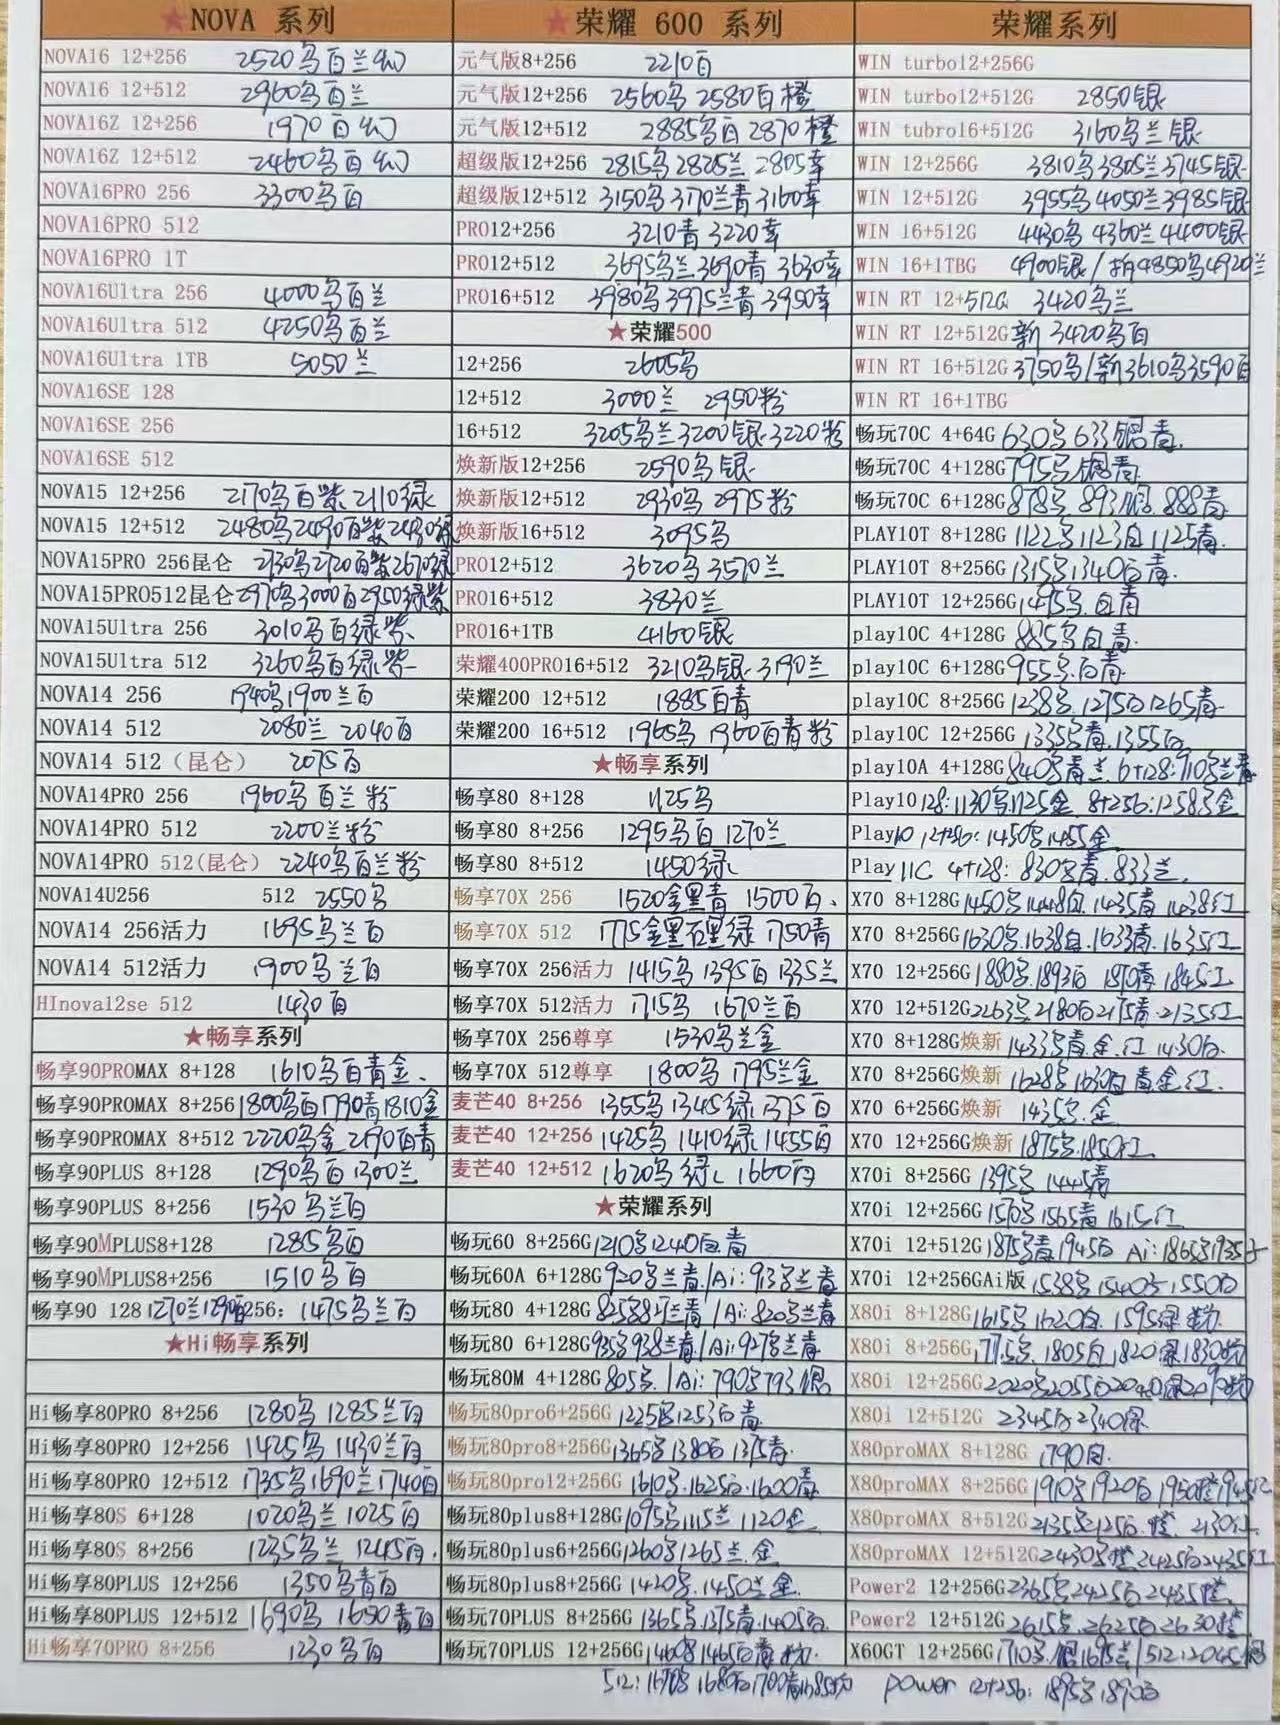 ★NOVA 系列
NOVA16 12+256 2520乌白兰幻
NOVA16 12+512 2960乌白兰
NOVA16Z 12+256 1970白幻
NOVA16Z 12+512 2460乌白幻
NOVA16PRO 256 3300乌白
NOVA16PRO 512
NOVA16PRO 1T
NOVA16Ultra 256 4000乌白兰
NOVA16Ultra 512 4250乌白兰
NOVA16Ultra 1TB 5050兰
NOVA16SE 128
NOVA16SE 256
NOVA16SE 512
NOVA15 12+256 2170乌白紫 2110绿
NOVA15 12+512 2480乌2490白紫2430绿
NOVA15PRO 256昆仑 2730乌2720白紫2670绿
NOVA15PRO512昆仑 2970乌3000白2950绿紫
NOVA15Ultra 256 3010乌白绿紫
NOVA15Ultra 512 3260乌白绿紫
NOVA14 256 1940乌1900兰白
NOVA14 512 2080兰 2040白
NOVA14 512（昆仑） 2075白
NOVA14PRO 256 1960乌白兰粉
NOVA14PRO 512 2200兰粉
NOVA14PRO 512(昆仑) 2240乌白兰粉
NOVA14U256 512 2550乌
NOVA14 256活力 1695乌兰白
NOVA14 512活力 1900乌兰白
HInova12se 512 1430白
★畅享系列
畅享90PROMAX 8+128 1610乌白青金
畅享90PROMAX 8+256 1800乌白1790青1810金
畅享90PROMAX 8+512 2220乌金 2190白青
畅享90PLUS 8+128 1290乌白1300兰
畅享90PLUS 8+256 1530乌兰白
畅享90MPLUS8+128 1285乌白
畅享90MPLUS8+256 1510乌白
畅享90 128 1270兰1290白256: 1475乌兰白
★Hi畅享系列
Hi畅享80PRO 8+256 1280乌 1285兰白
Hi畅享80PRO 12+256 1425乌 1430兰白
Hi畅享80PRO 12+512 1735乌1690兰1740白
Hi畅享80S 6+128 1020乌兰 1025白
Hi畅享80S 8+256 1235乌兰 1245白
Hi畅享80PLUS 12+256 1350乌青白
Hi畅享80PLUS 12+512 1690乌 1680青白
Hi畅享70PRO 8+256 1230乌白
★荣耀 600 系列
元气版8+256 2210白
元气版12+256 2560乌 2580白橙
元气版12+512 2885乌白 2870橙
超级版12+256 2815乌2825兰 2805幸
超级版12+512 3150乌3170兰青3160幸
PRO12+256 3210青 3220幸
PRO12+512 3695乌兰3690青 3630幸
PRO16+512 3980乌3975兰青3950幸
★荣耀500
12+256 2605乌
12+512 3000兰 2950粉
16+512 3205乌兰3200银3220粉
焕新版12+256 2590乌银
焕新版12+512 2930乌 2975粉
焕新版16+512 3095乌
PRO12+512 3620乌3570兰
PRO16+512 3830兰
PRO16+1TB 4160银
荣耀400PRO16+512 3210乌银 3190兰
荣耀200 12+512 1885白青
荣耀200 16+512 1965乌 1960白青粉
★畅享系列
畅享80 8+128 1125乌
畅享80 8+256 1295乌白1270兰
畅享80 8+512 1450绿
畅享70X 256 1520金黑青 1500白
畅享70X 512 1775金黑绿 1750青
畅享70X 256活力 1415乌1395白1335兰
畅享70X 512活力 1715乌 1670兰白
畅享70X 256尊享 1530乌兰金
畅享70X 512尊享 1800乌 1795兰金
麦芒40 8+256 1355乌1345绿1375白
麦芒40 12+256 1425乌1410绿1455白
麦芒40 12+512 1620乌绿 1660白
★荣耀系列
畅玩60 8+256G 1210乌1240白青
畅玩60A 6+128G 920乌兰青/Ai:913乌兰青
畅玩80 4+128G 825乌827兰青/Ai:820乌兰青
畅玩80 6+128G 935乌938兰青/Ai:927乌兰青
畅玩80M 4+128G 805乌/Ai:790乌793银
畅玩80pro6+256G 1225乌1253白青
畅玩80pro8+256G 1365乌1380白1375青
畅玩80pro12+256G 1610乌1625白1600青
畅玩80plus8+128G 1095乌1115兰1120金
畅玩80plus6+256G 1260乌1265兰金
畅玩80plus8+256G 1420乌1450兰金
畅玩70PLUS 8+256G 1365乌1375青1405白
畅玩70PLUS 12+256G 1460乌1465白青粉
512:1670乌1680白1700青1685粉
荣耀系列
WIN turbo12+256G
WIN turbo12+512G 2850银
WIN tubro16+512G 3160乌兰银
WIN 12+256G 3810乌3805兰3745银
WIN 12+512G 3955乌4050兰3985银
WIN 16+512G 4430乌4360兰4400银
WIN 16+1TBG 4900银/拆4850乌4920兰
WIN RT 12+512G 3420乌兰
WIN RT 12+512G新 3420乌白
WIN RT 16+512G 3750乌/新3610乌3590白
WIN RT 16+1TBG
畅玩70C 4+64G 630乌633银青
畅玩70C 4+128G 795乌银青
畅玩70C 6+128G 878乌893银888青
PLAY10T 8+128G 1122乌1123白1125青
PLAY10T 8+256G 1315乌1340白青
PLAY10T 12+256G 1495乌白青
play10C 4+128G 885乌白青
play10C 6+128G 955乌白青
play10C 8+256G 1238乌1275白1265青
play10C 12+256G 1335乌青1355白
play10A 4+128G 840乌青兰 6+128:910乌兰青
Play10 128:1130乌1125金 8+256:1258乌金
Play10 12+256:1450乌1455金
Play 11C 4+128:830乌青833兰
X70 8+128G 1450乌1448白1435青1438红
X70 8+256G 1630乌1638白1633青1635红
X70 12+256G 1880乌1893白1870青1845红
X70 12+512G 2263乌2180白2175青2135红
X70 8+128G焕新 1433乌青金红1430白
X70 8+256G焕新 1628乌1630白青金红
X70 6+256G焕新 1435乌金
X70 12+256G焕新 1875乌1850红
X70i 8+256G 1395乌1445青
X70i 12+256G 1570乌1565青1615红
X70i 12+512G 1875乌青1945白 Ai:1865乌1935
X70i 12+256GAi版 1538乌1540 1550白
X80i 8+128G 1615乌1620白1595绿粉
X80i 8+256G 1775乌1805白1820绿1830粉
X80i 12+256G 2020乌2055白2040绿2090粉
X80i 12+512G 2345白2340绿
X80proMAX 8+128G 1790白
X80proMAX 8+256G 1910乌1920白1950橙1945红
X80proMAX 8+512G 2135乌2125白橙2130红
X80proMAX 12+512G 2430乌橙2425白2435红
Power2 12+256G 2365乌2425白2435橙
Power2 12+512G 2615乌2625白2630橙
X60GT 12+256G 1710乌银1695兰/512:2045银
power 12+256:1895乌1890白